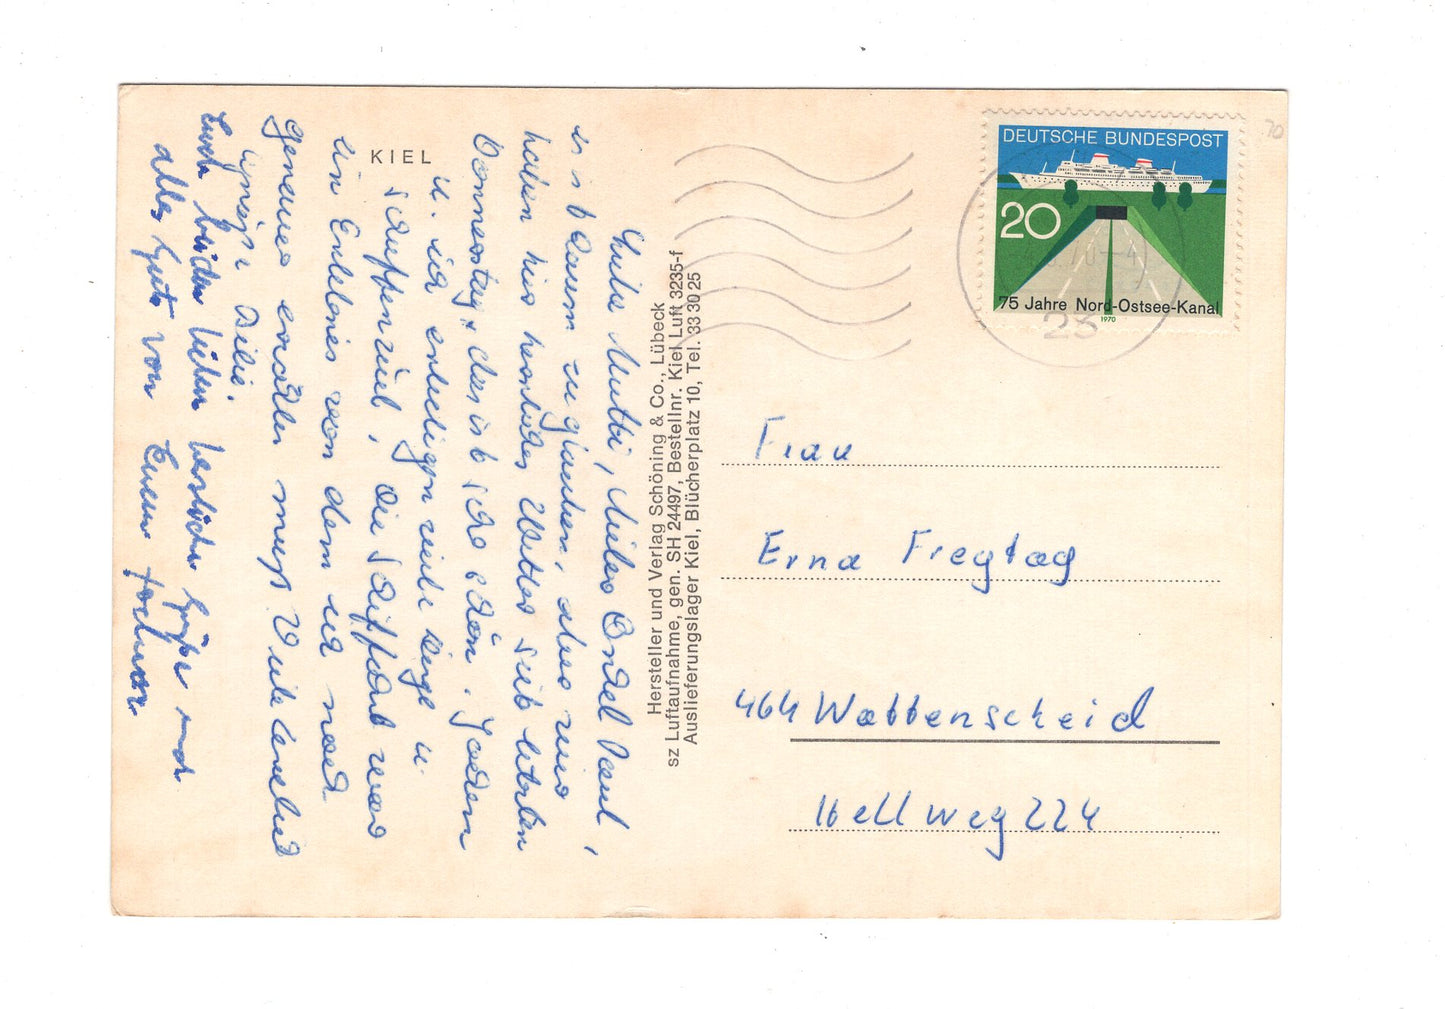 KIEL
Liebe Mutti, lieber Onkel Paul!
es ist kaum zu glauben, aber wir
haben hier herrliches Wetter seit letzten
Donnerstag, das ist sehr schön. Jochen
u. ich erledigen viele Wege u.
schuppern viel, die Schiffahrt war
ein Erlebnis von dem ich noch
genaues erzählen muß. Viele liebe
Grüße
Euch beiden lieben herzliche Grüße und
alles Gute von Eurem Jochen
Hersteller und Verlag Schöning & Co., Lübeck
sz Luftaufnahme, gen. SH 24497, Bestellnr. Kiel Luft 3235-f
Auslieferungslager Kiel, Blücherplatz 10, Tel. 33 30 25
70
DEUTSCHE BUNDESPOST
20
75 Jahre Nord-Ostsee-Kanal
1970
23
Frau
Erna Freytag
464 Wattenscheid
Hellweg 224